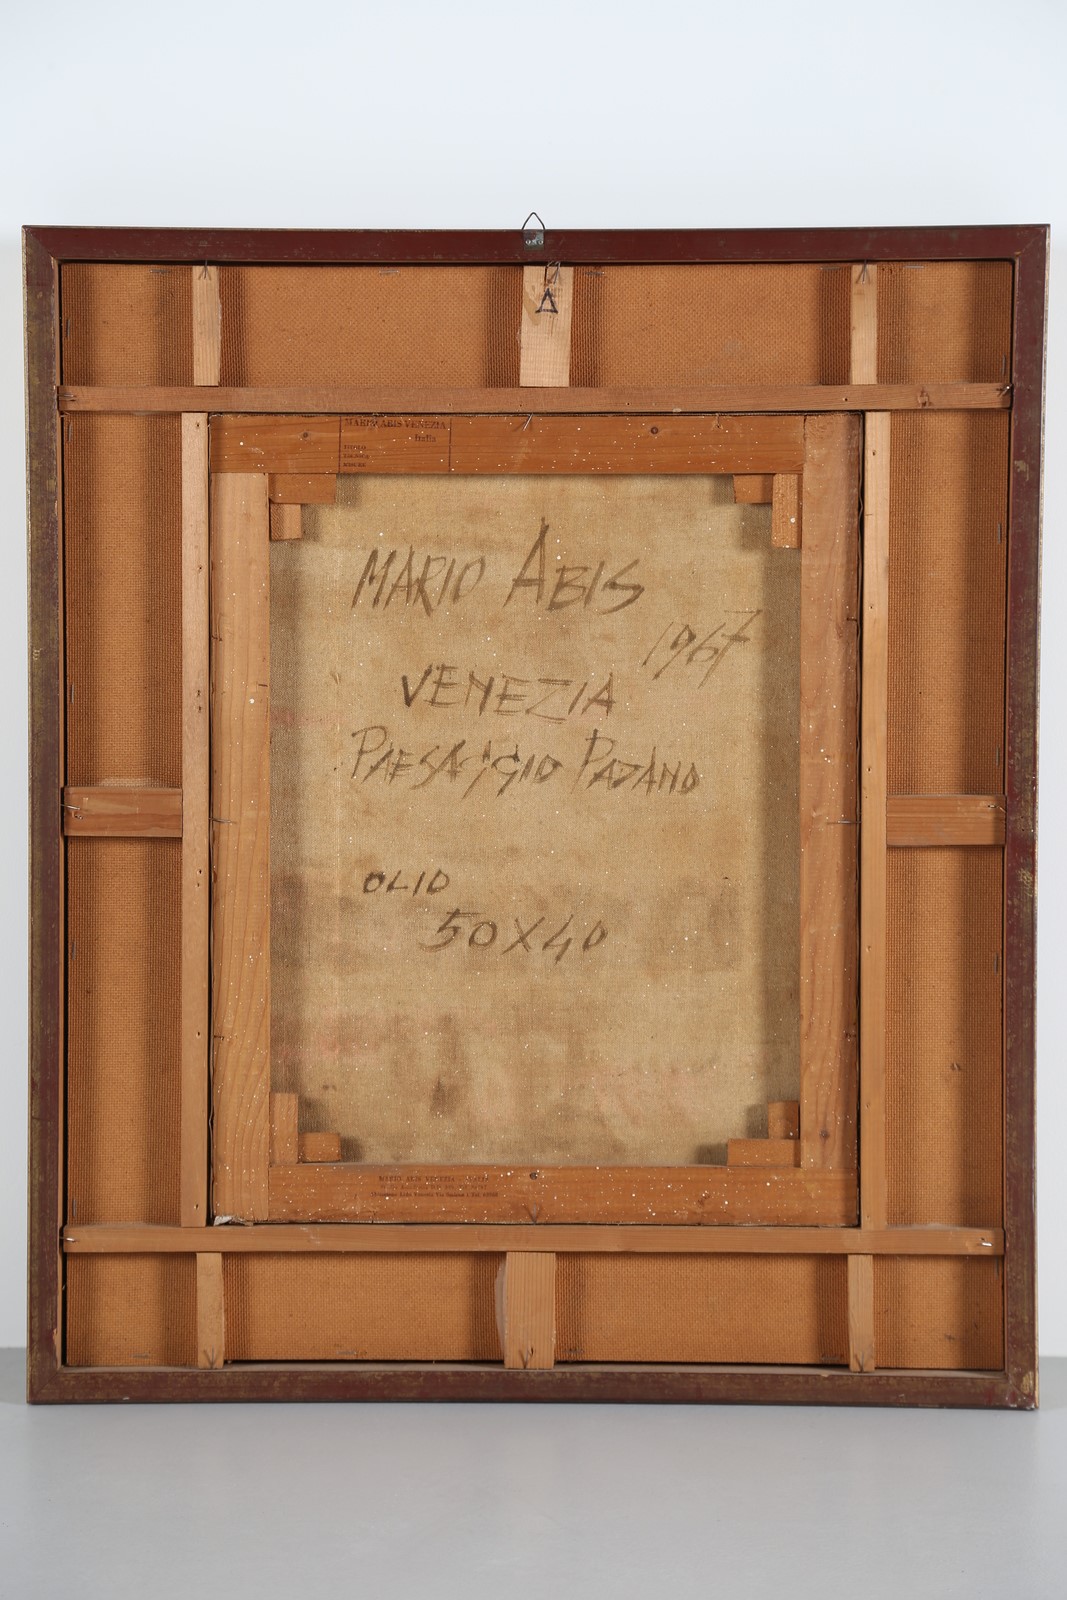 Δ
MARIO ABIS VENEZIA
Italia
MARIO ABIS
1967
VENEZIA
PAESAGGIO PADANO
OLIO
50X40
MARIO ABIS VENEZIA